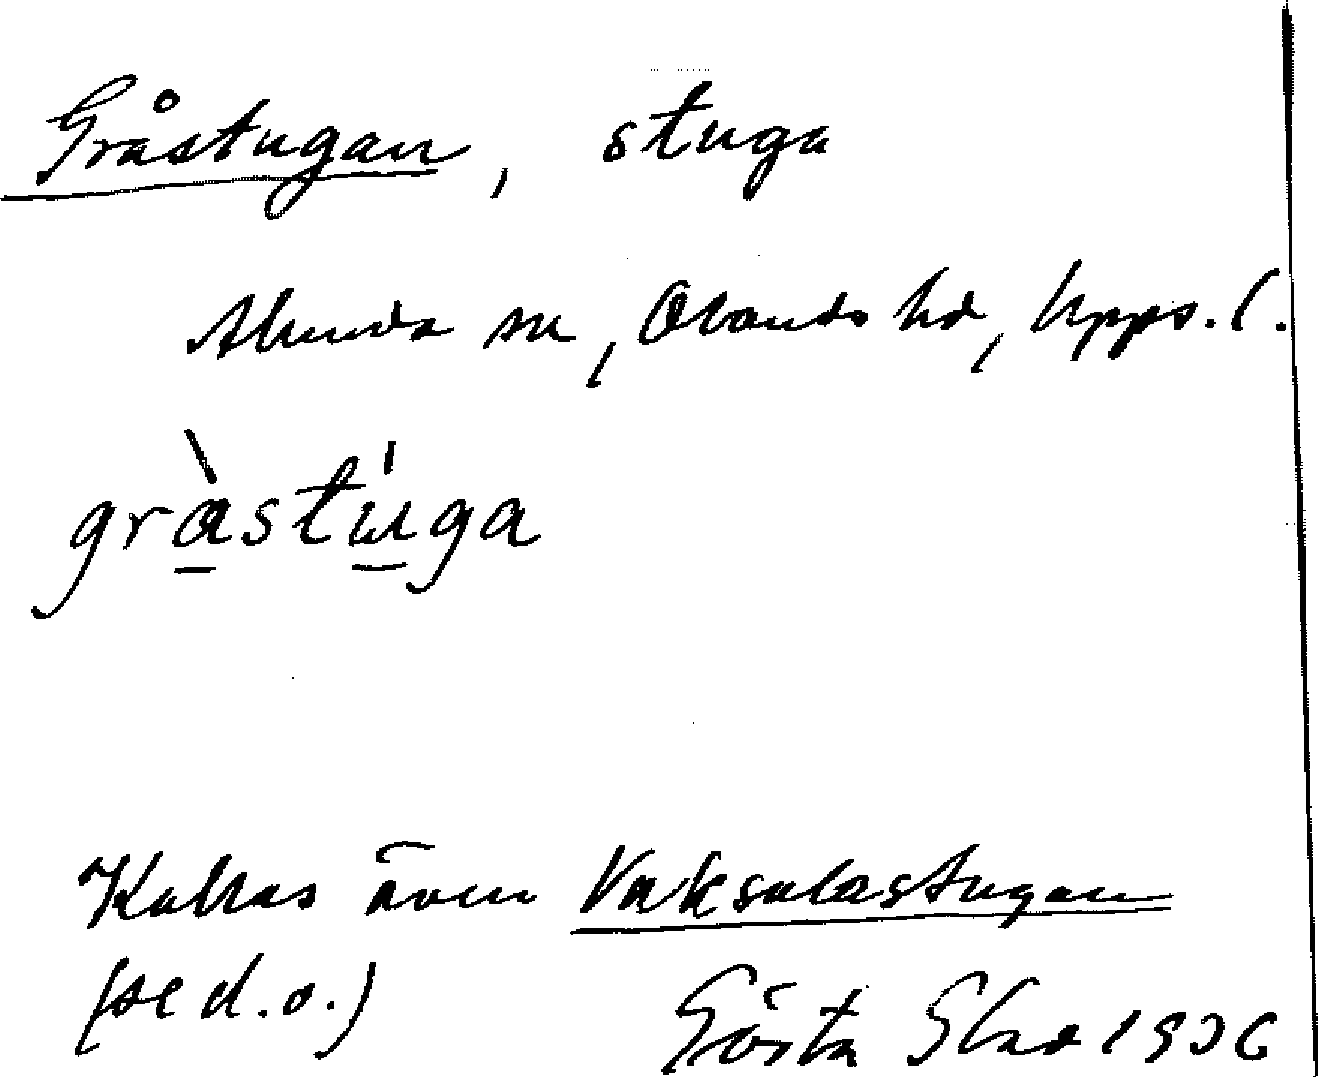 Gråstugan, stuga
Alunda sn, Olands hd, Upps. l.
gràstu̍ga
Kallas även Vaksalastugan
(se d.o.) Gösta Elae 1936